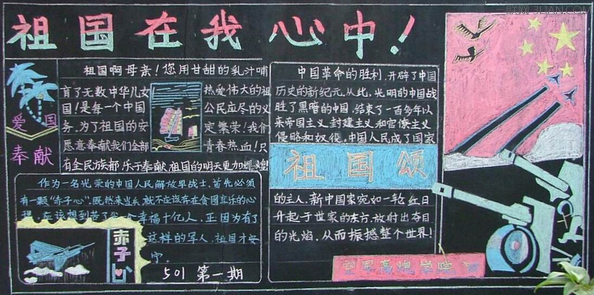 祖国在我心中!
爱国
奉献
祖国啊母亲!您用甘甜的乳汁哺
育了无数中华儿女 热爱伟大的祖
国!是每一个中国 公民应尽的义
务,为了祖国的安 定繁荣!我们
愿意奉献我们全部 青春热血!只
有全民族都乐于奉献,祖国的明天更加辉煌!
作为一名光荣的中国人民解放军战士,首先必须
有一颗“赤子心”.既然来当兵,就不应该存在贪图享乐的心
幸福十亿人,正因为有了
这样的军人,祖国才安
宁.
赤子心
501 第一期
中国革命的胜利,开辟了中国
历史的新纪元.从此,光明的中国战
胜了黑暗的中国,结束了一百多年以
来帝国主义,封建主义和官僚主义
侵略和奴役,中国人民成了国家
祖国颂
的主人.新中国宛如一轮红日
升起于世界的东方,放射出夺目
的光焰,从而振撼整个世界!